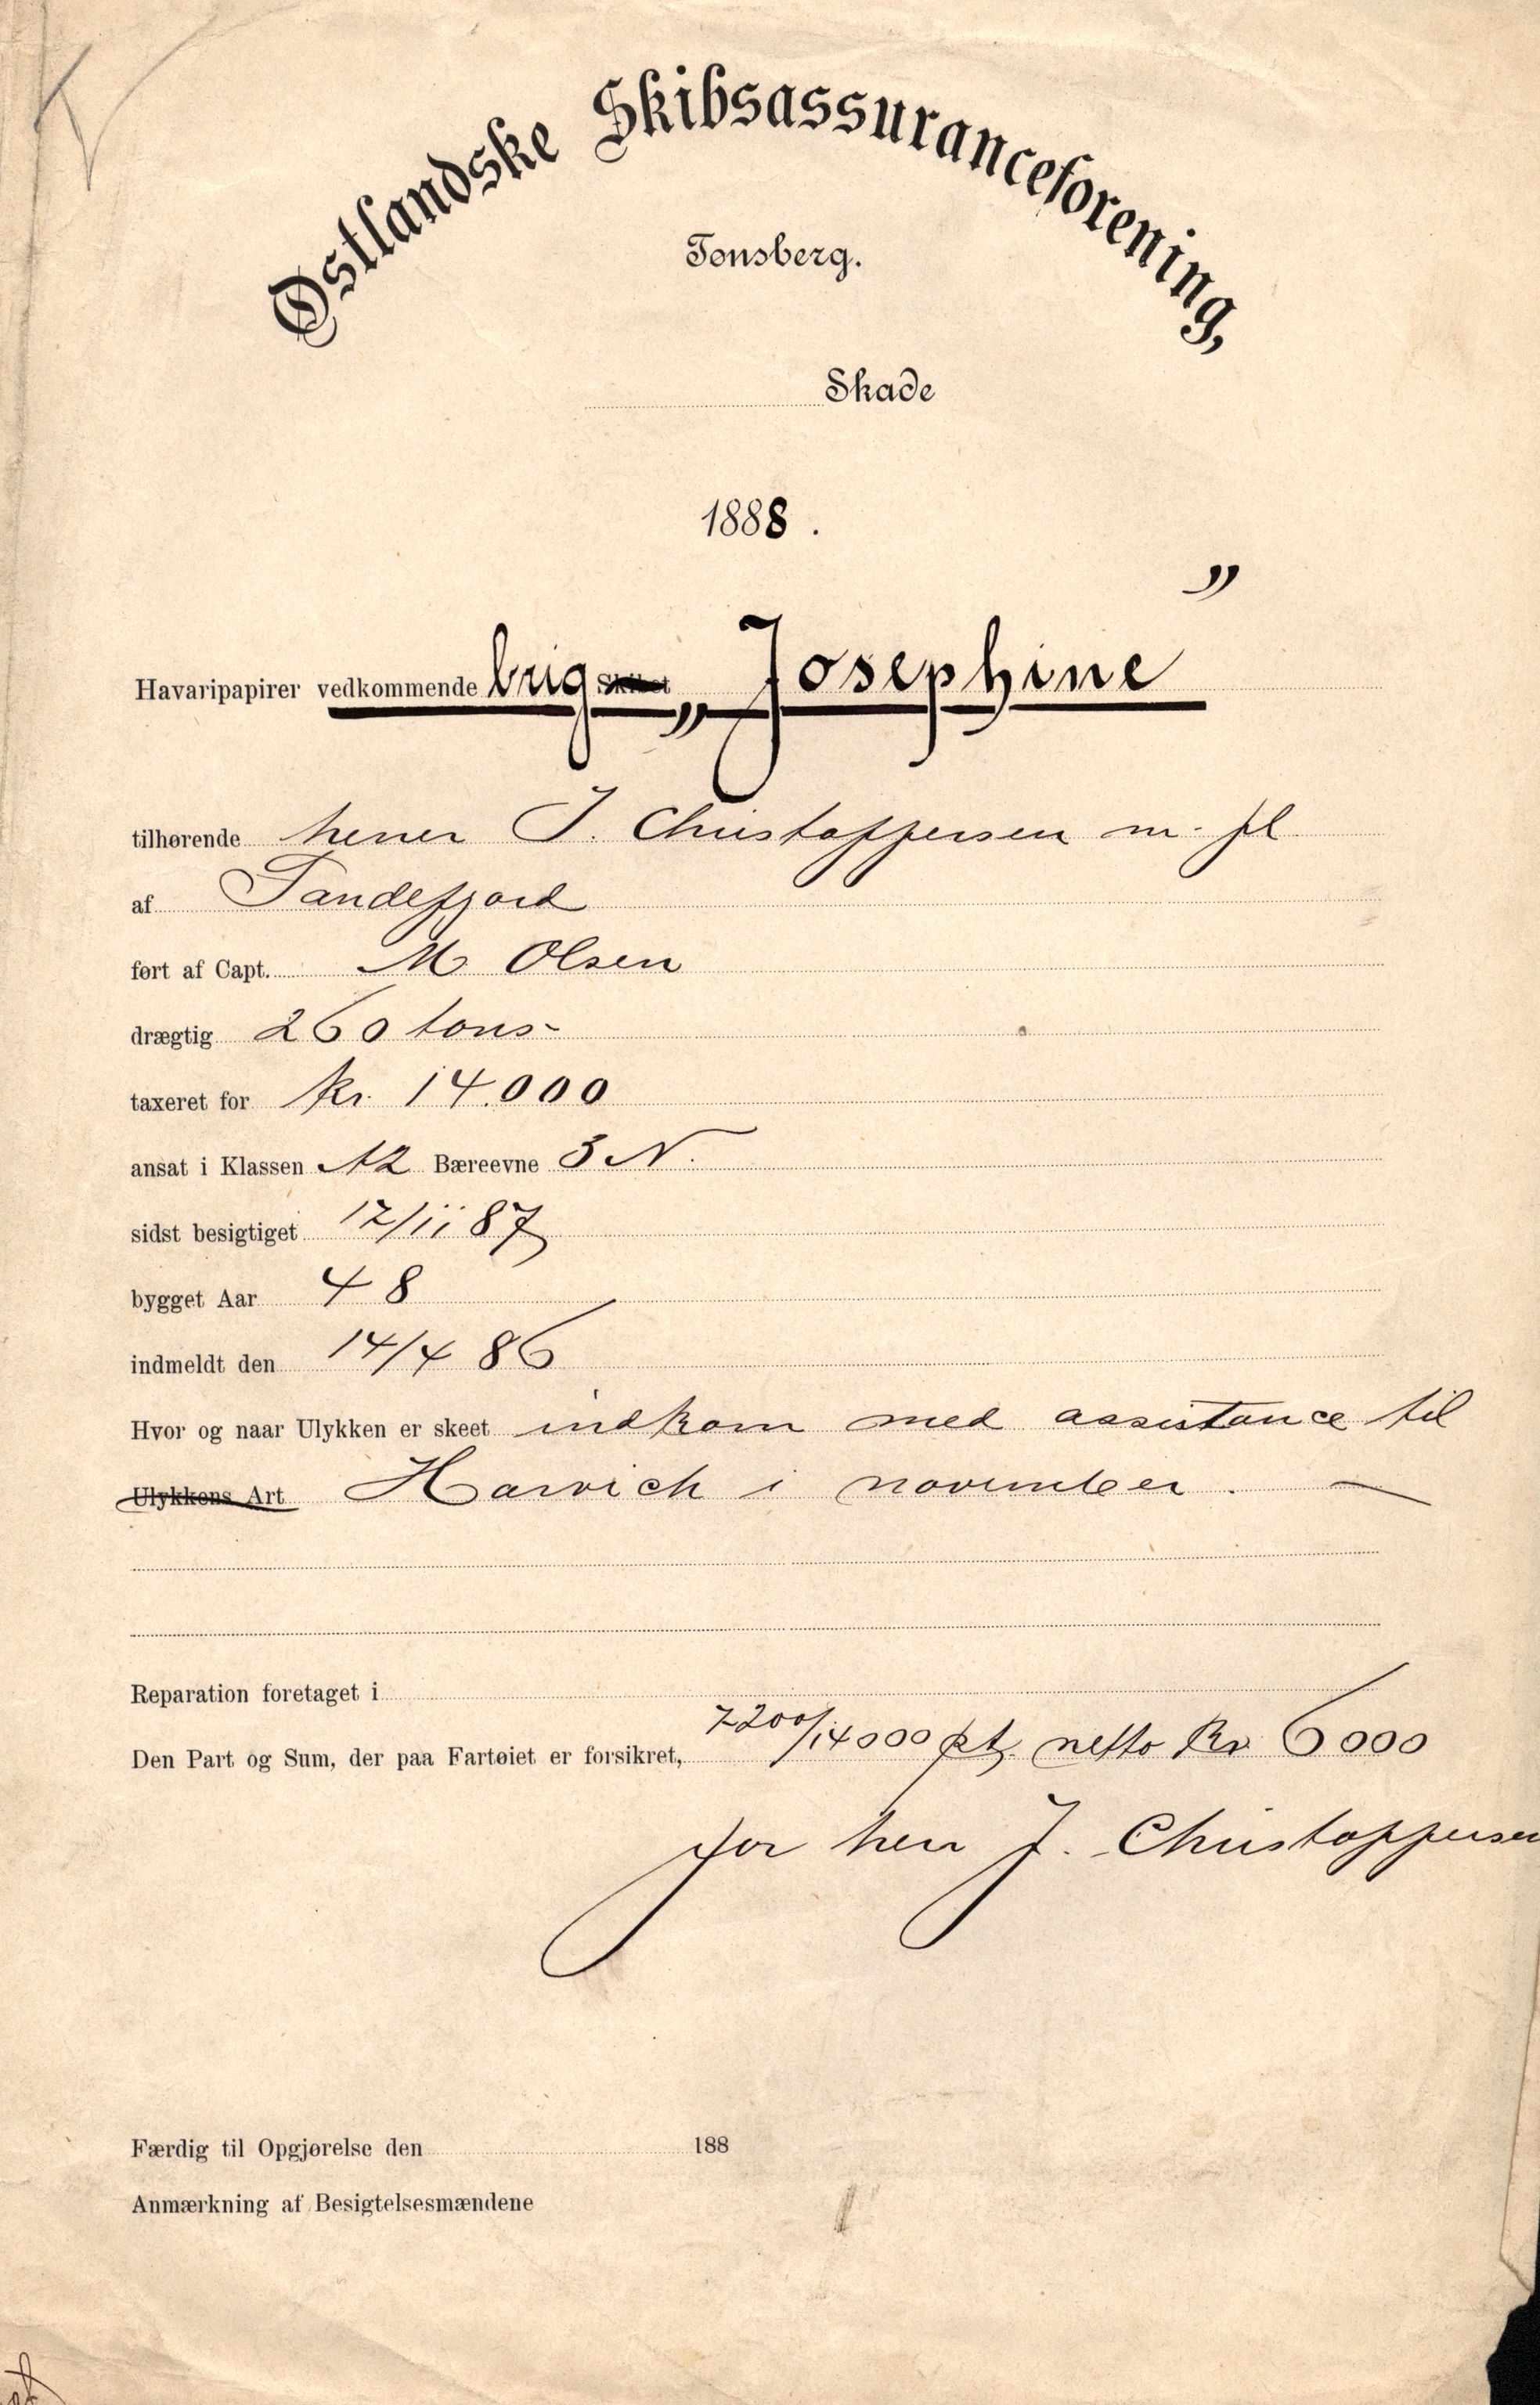 Østlandske Skibsassuranceforening,
Tønsberg.
Skade
1888.
Havaripapirer vedkommende brig Skibet „Josephine”
tilhørende herrer J. Christoffersen m. fl
af Sandefjord
ført af Capt. M Olsen
drægtig 260 tons
taxeret for kr. 14.000
ansat i Klassen A2 Bæreevne 3 N.
sidst besigtiget 17/11 87
bygget Aar 48
indmeldt den 14/4 86
Hvor og naar Ulykken er skeet indkom med assistance til
Ulykkens Art Harvich i november.
Reparation foretaget i
Den Part og Sum, der paa Fartøiet er forsikret, 7200/14000 pt. netto Kr 6000
for herr J. Christoffersen
Færdig til Opgjørelse den 188
Anmærkning af Besigtelsesmændene